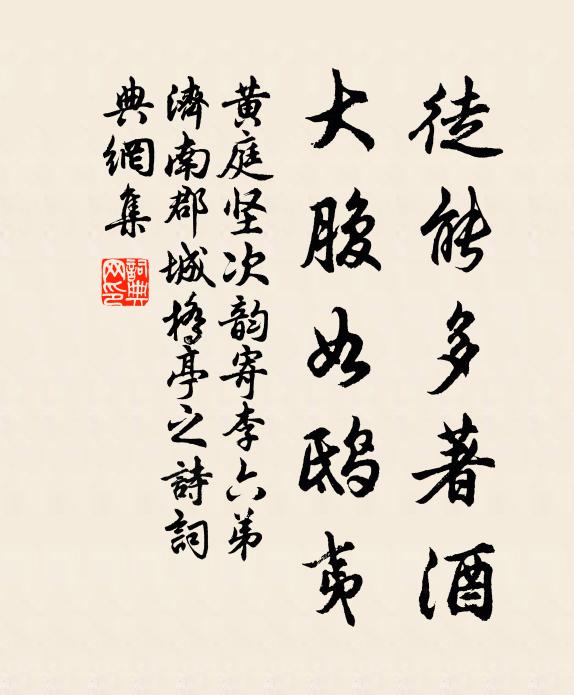 徒能多著酒
大腹如鴟夷
黄庭坚次韵寄李六弟
濟南郡城橋亭之詩詞
典網集
詞典网印